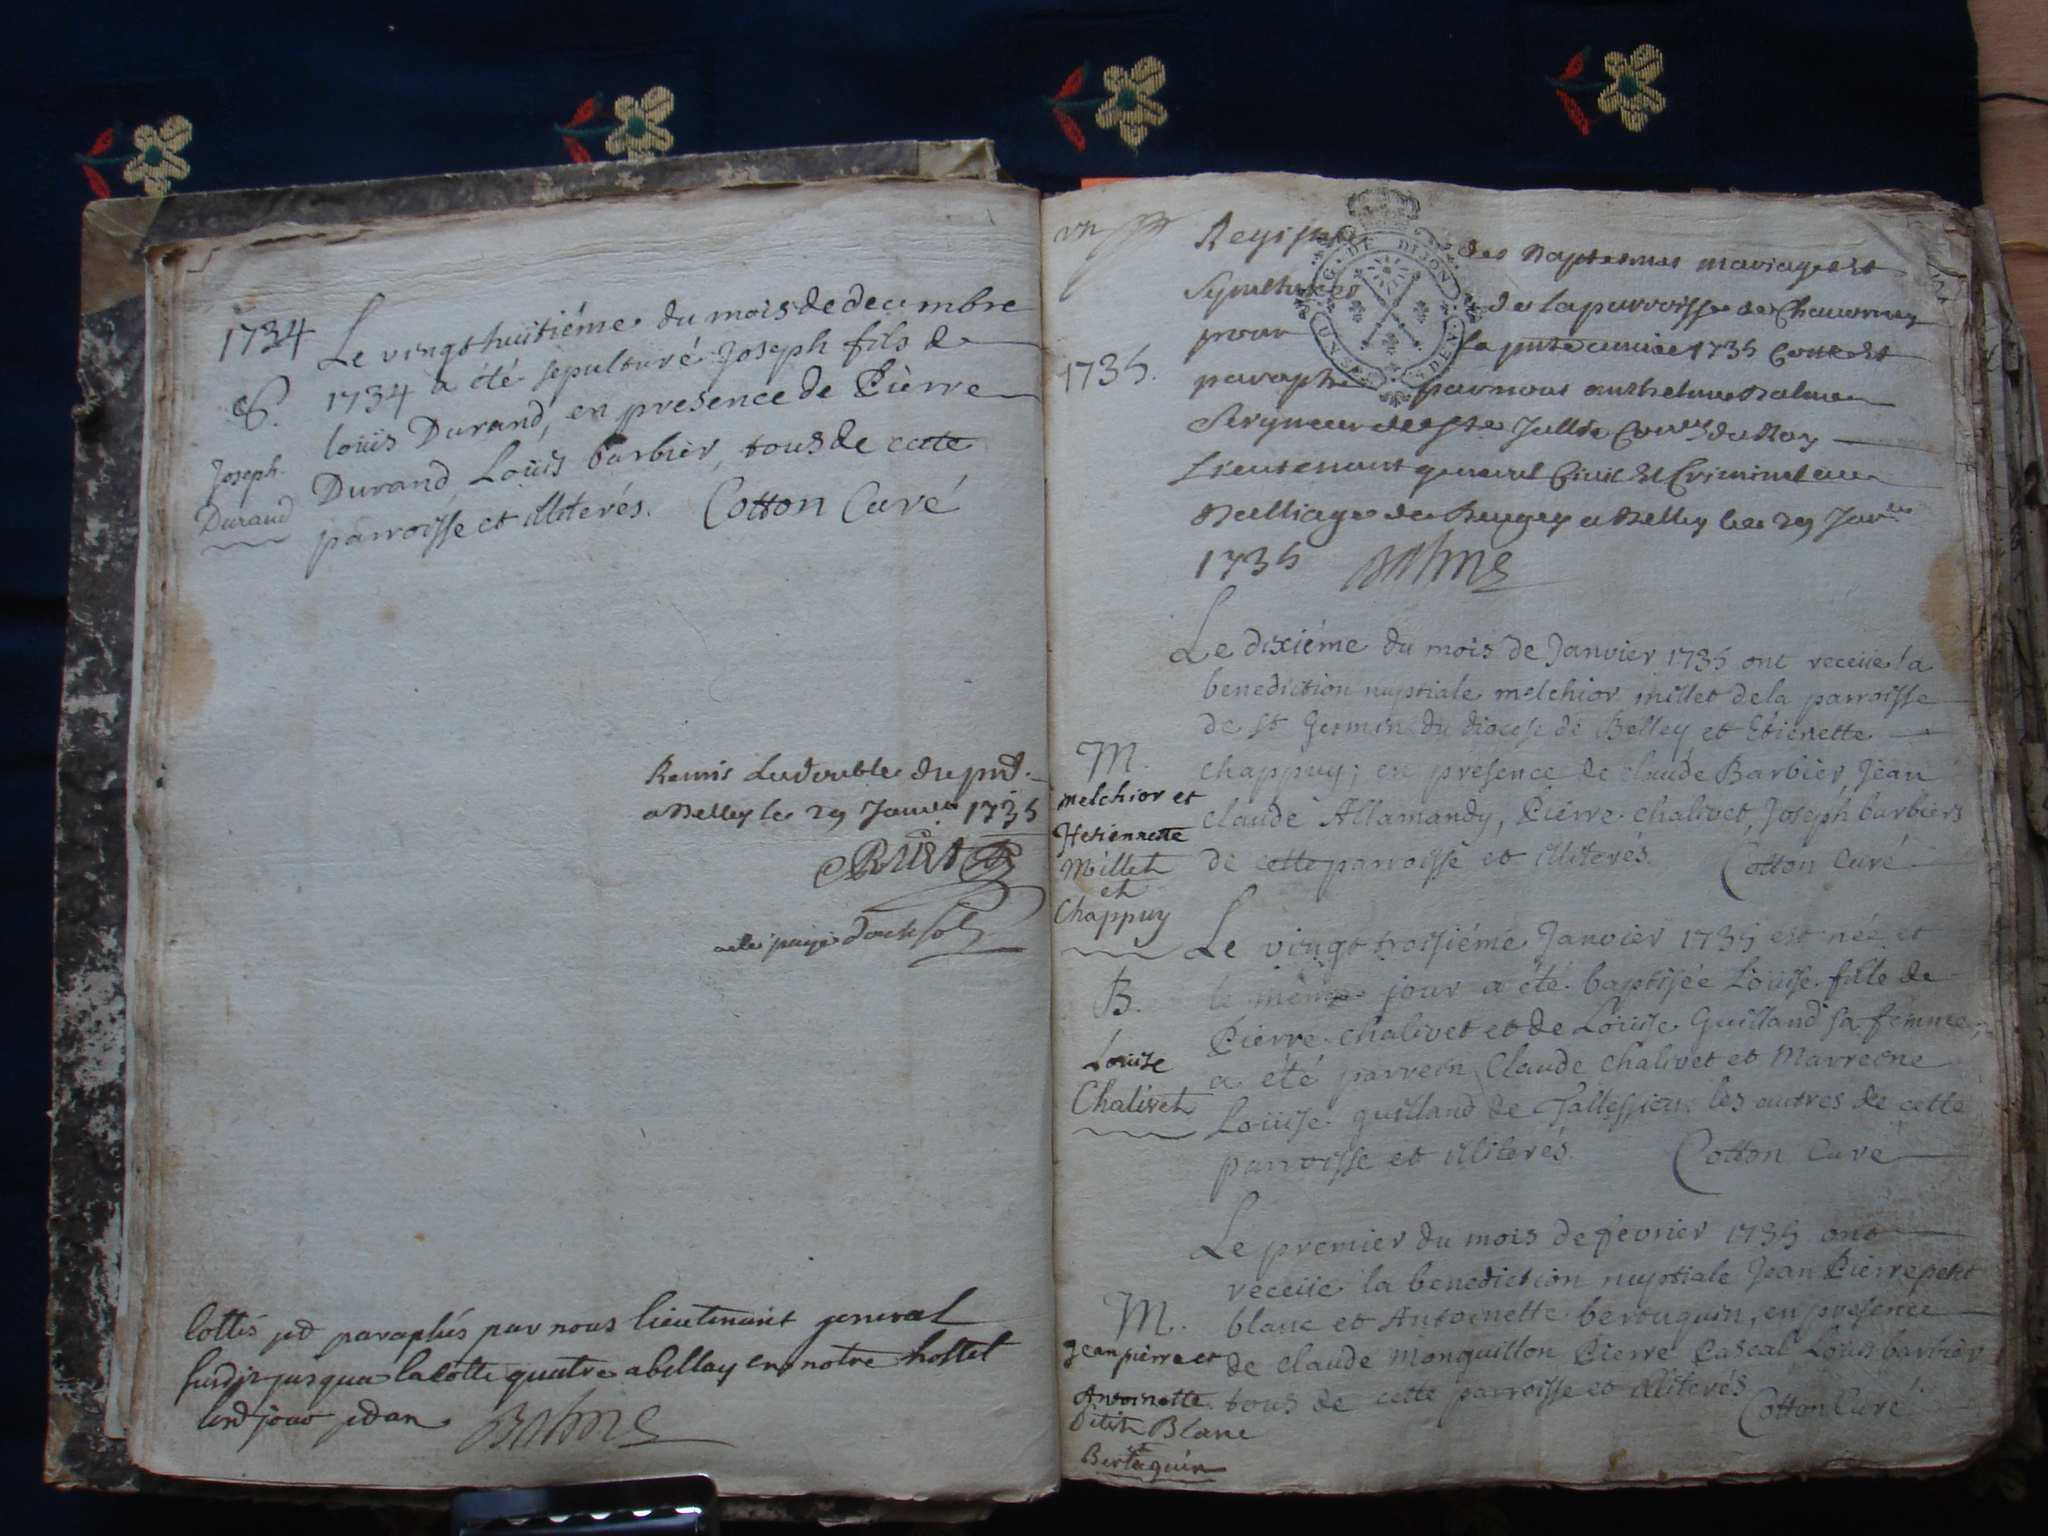 1734
Le vingt huitiéme du mois de decembre
1734 a été sepulturé Joseph fils de
S.
loüis Durand, en presence de Pierre
Joseph
Durand
Durand Loüis barbier, tous de cette
parroisse et illiterés. Cotton Curé
Remis le double du pnt
a Belley le 29 Janv. 1735
cottés et paraphés par nous lieutenant general
jusqua la cotte quatre a bellay en nôtre hostel
led jour et an Balme
vn
Registre des Baptesmes mariages Et
Sepultures de la parroisse de
pour la pnte année 1735 Cotté Et
1735.
paraphé par nous anthelme Balme
Seigneur de Ste Jullie Coner du Roy
Lieutenant general Civil Et Criminel au
Balliage de Bugey a Belley le 29 Janv
1735 Balme
Le dixiéme du mois de Janvier 1735 ont receüe la
benediction nuptiale melchior millet de la parroisse
de st Germin du diocese de Belley et Etienette
M.
chappuy; en presence de claude Barbier, Jean
melchior et
claude Allamandy, Pierre chalivet, Joseph barbiers
Hetiennette
Millet
et
Chappuy
de cette parroisse et illiterés. Cotton Curé
Le vingt troisiéme Janvier 1735 est née et
B.
le même jour a été baptisée Loüise fille de
Pierre chalivet et de Loüise Guilland sa femme,
Louise
Chalivet
a été parrein Claude chalivet et Marreine
Loüise guilland de Tallissieu les autres de cette
parroisse et illiterés. Cotton Curé
Le premier du mois de fevrier 1735 ont
receüe la benediction nuptiale Jean Pierre petit
M.
blanc et Antoinette bertuquin, en presence
Jean pierre et
de claude Monguillon Pierre Pascal Loüis barbier
Antoinette
tous de cette parroisse et illiterés
Petit Blanc
Cotton Curé
et
Bertaquin